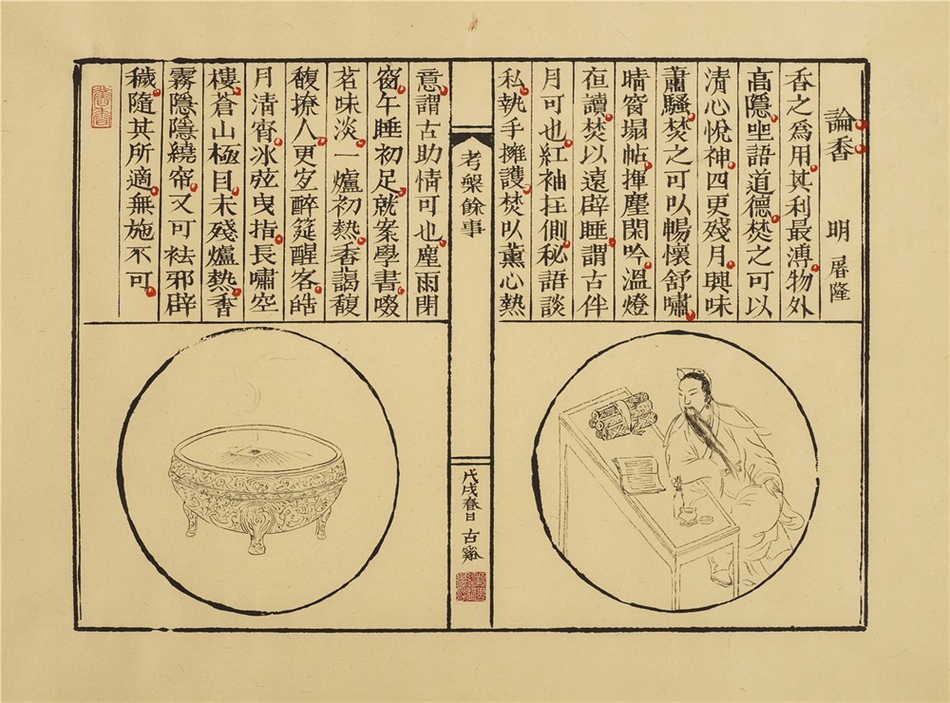 論香 明 屠隆
香之爲用其利最溥物外
高隱坐語道德焚之可以
清心悅神四更殘月興味
蕭騷焚之可以暢懷舒嘯
晴窗塌帖揮塵閑吟溫燈
夜讀焚以遠辟睡謂古伴
月可也紅袖在側秘語談
私執手擁護焚以薰心熱
考槃餘事
戊戌春日 古谿
意謂古助情可也塵雨閉
窗午睡初足就案學書啜
茗味淡一爐初熱香藹馥
馥撩人更宜醉筵醒客皓
月清宵冰弦曳指長嘯空
樓蒼山極目未殘爐熱香
霧隱隱繞帘又可祛邪辟
穢隨其所適無施不可